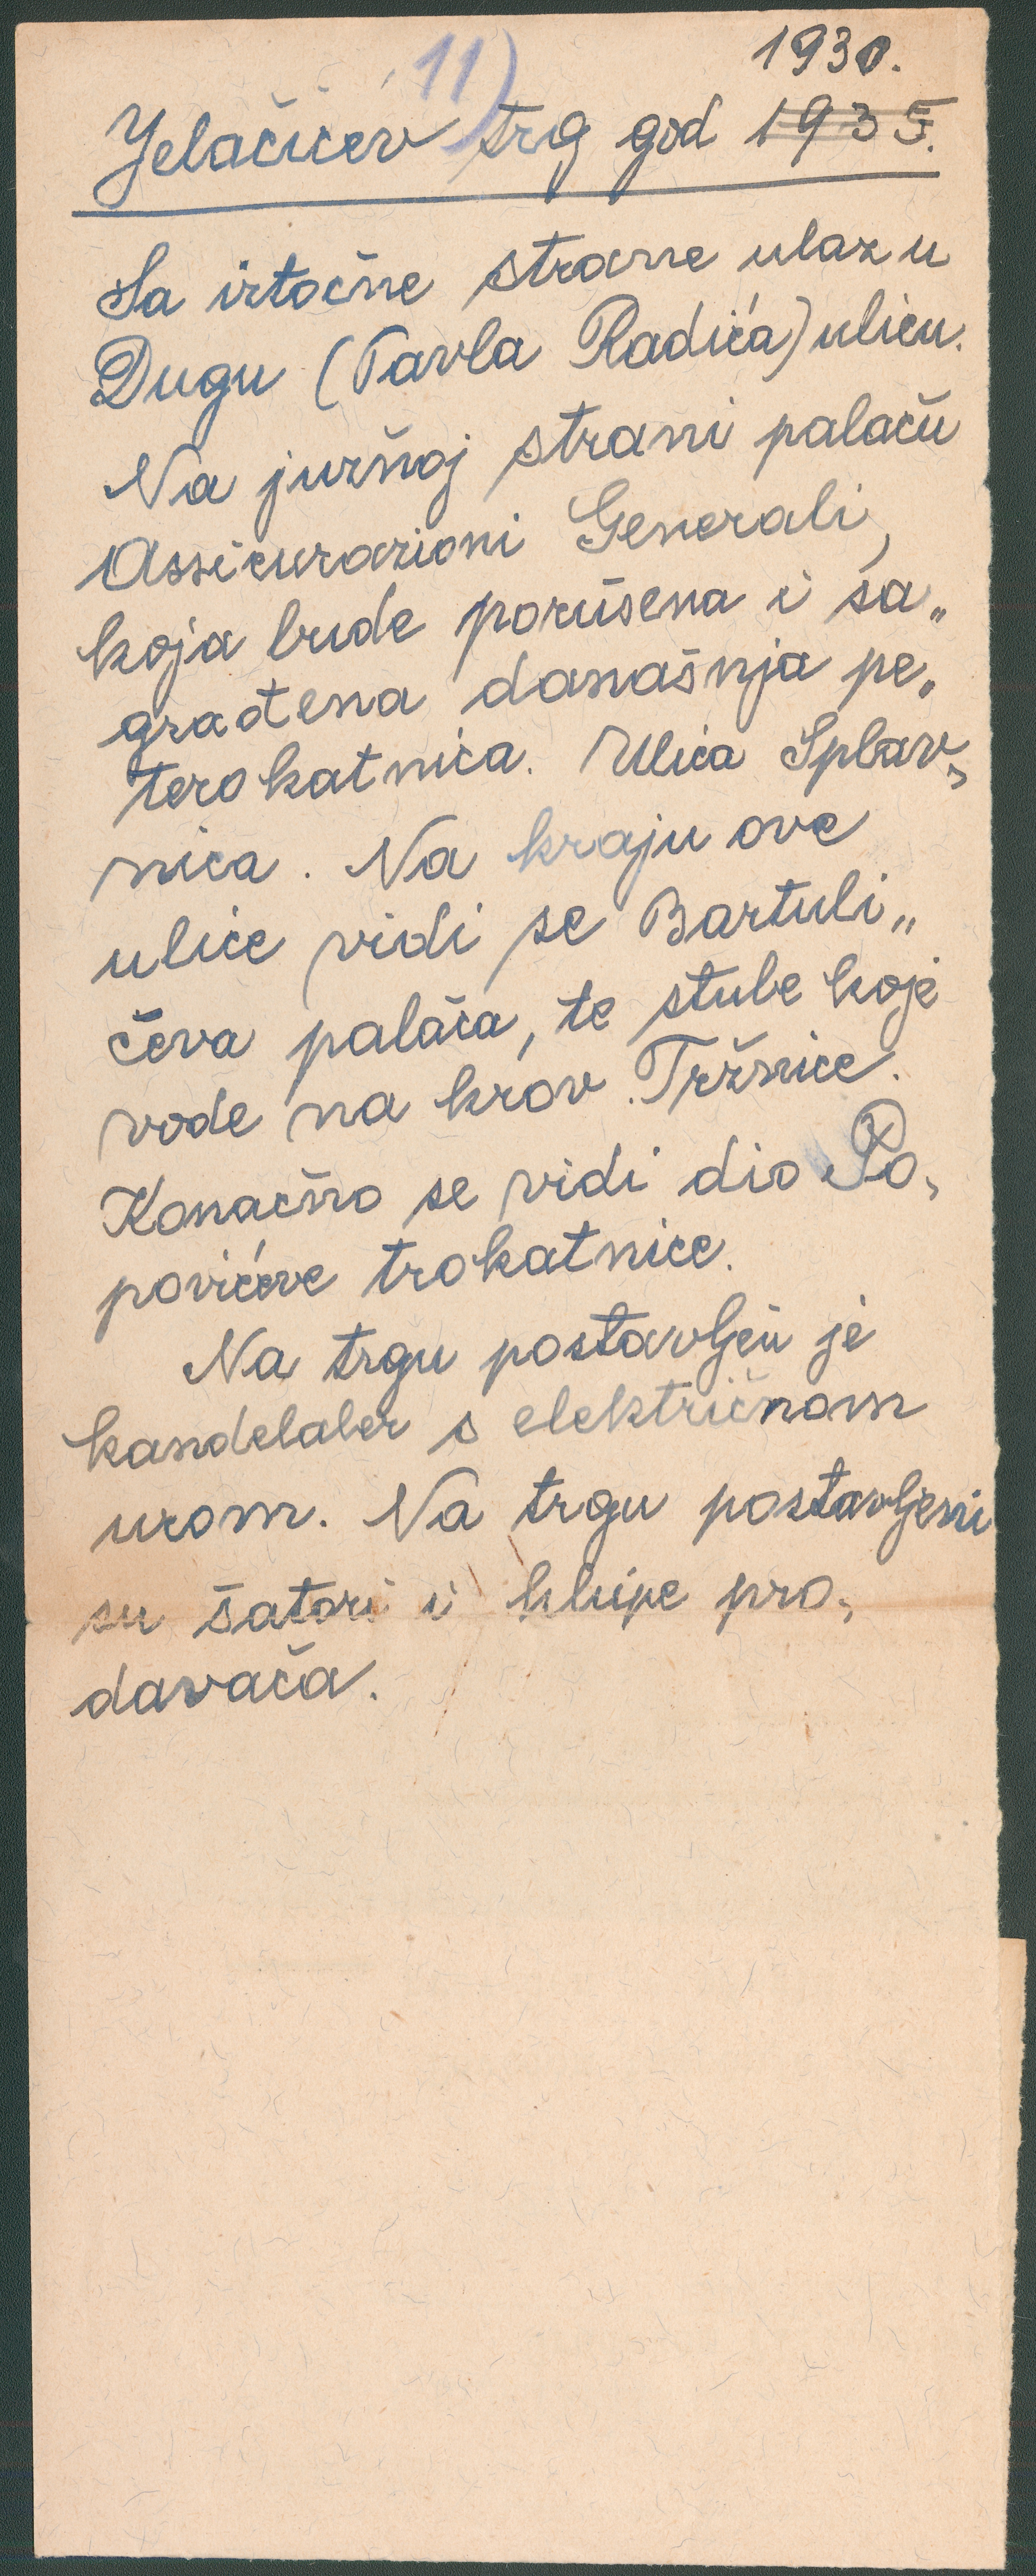 11)
1930.
Jelačićev trg god 1935.
Sa istočne strane ulaz u
Dugu (Pavla Radića) ulicu.
Na južnoj strani palaču
Assicurazioni Generali,
koja bude porušena i sa„
građena današnja pe„
terokatnica. Ulica Splav„
nica. Na kraju ove
ulice vidi se Bartuli„
čeva palača, te stube koje
vode na krov Tržnice.
Konačno se vidi dio Po„
povićeve trokatnice.
Na trgu postavljen je
kandelaber s električnom
urom. Na trgu postavljeni
su šatori i klupe pro„
davača.